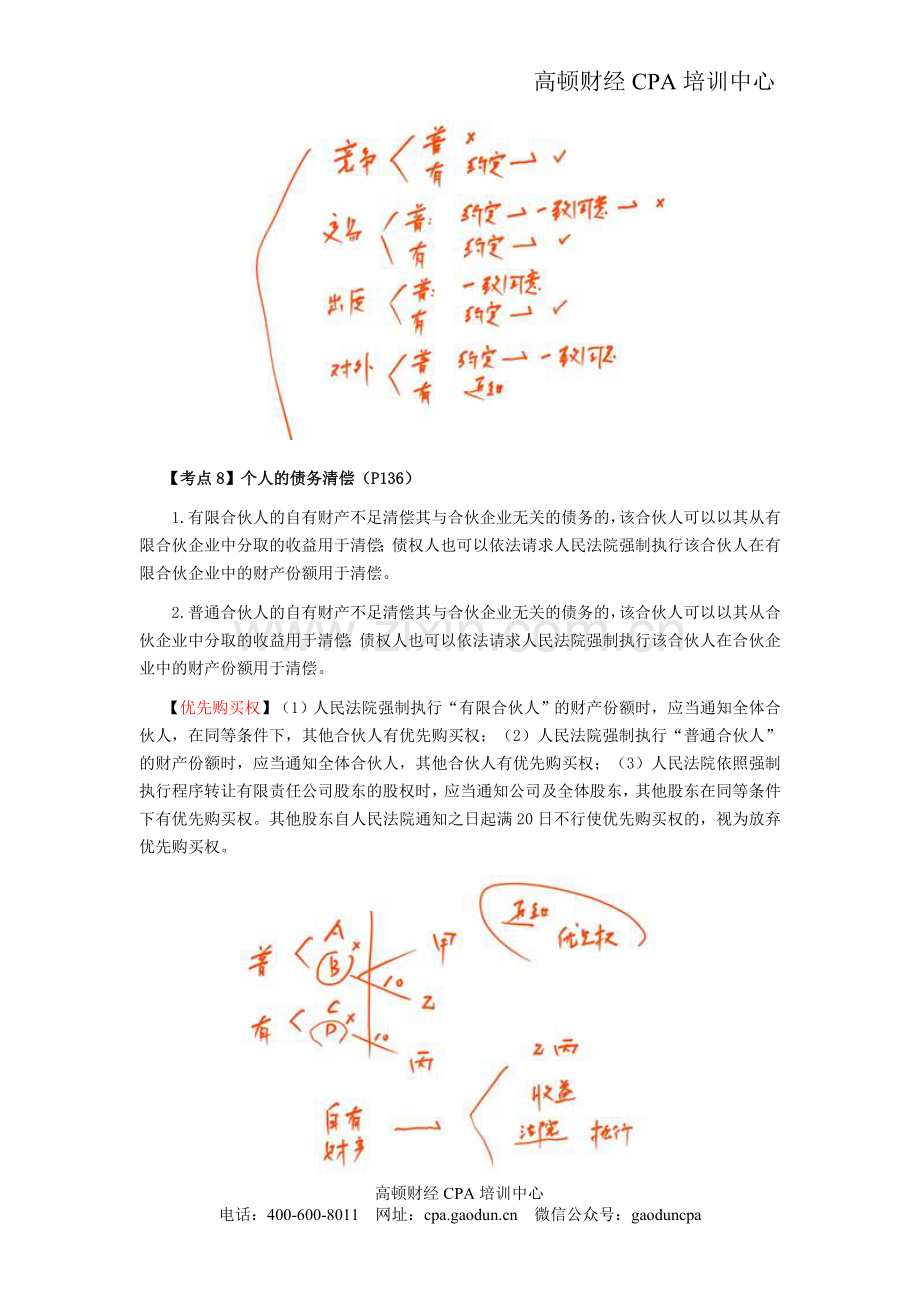 高顿财经 CPA 培训中心
竞争
普 ×
有 约定→ ✓
交易
普: 约定→一致同意→ ×
有 约定→ ✓
出质
普: 一致同意
有 约定→ ✓
对外
普 约定→一致同意
有 通知
【考点 8】个人的债务清偿（P136）
1.有限合伙人的自有财产不足清偿其与合伙企业无关的债务的，该合伙人可以以其从有
限合伙企业中分取的收益用于清偿；债权人也可以依法请求人民法院强制执行该合伙人在有
限合伙企业中的财产份额用于清偿。
2.普通合伙人的自有财产不足清偿其与合伙企业无关的债务的，该合伙人可以以其从合
伙企业中分取的收益用于清偿；债权人也可以依法请求人民法院强制执行该合伙人在合伙企
业中的财产份额用于清偿。
www.zixin.com.cn
【优先购买权】（1）人民法院强制执行“有限合伙人”的财产份额时，应当通知全体合
伙人，在同等条件下，其他合伙人有优先购买权；（2）人民法院强制执行“普通合伙人”
的财产份额时，应当通知全体合伙人，其他合伙人有优先购买权；（3）人民法院依照强制
执行程序转让有限责任公司股东的股权时，应当通知公司及全体股东，其他股东在同等条件
下有优先购买权。其他股东自人民法院通知之日起满 20 日不行使优先购买权的，视为放弃
优先购买权。
通知
优先权
普 A
B × 甲
10 乙
有 C
D × 10 丙
自有
财产 →
乙 丙
收益
法院 执行
高顿财经 CPA 培训中心
电话：400-600-8011 网址：cpa.gaodun.cn 微信公众号：gaoduncpa